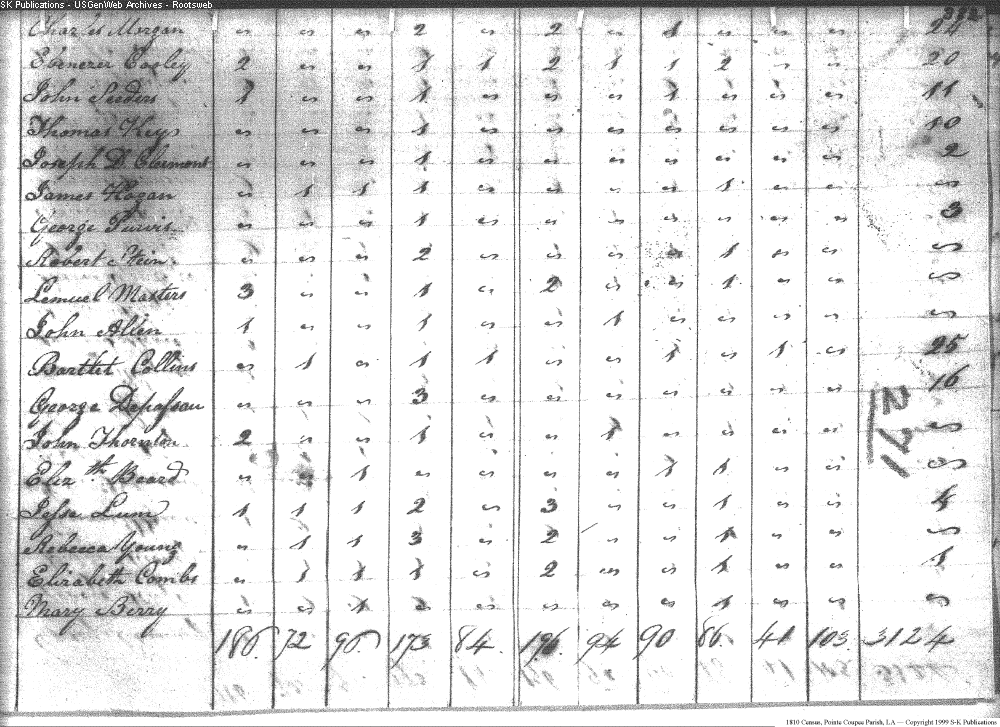 SK Publications - USGenWeb Archives - Rootsweb
392
Charles Morgan " " " 2 " 2 " 1 " " " 24
Ebenezer Cooley 2 " " 1 1 2 1 1 2 " " 20
John Seeders 1 " " 1 " " " 1 " " " 11
Thomas Keys " " " 1 " " " " " " " 10
Joseph D. Clermont " " " 1 " " " " " " " 2
James Hogan " 1 1 1 " " " " 1 " " "
George Purvis " " " 1 " " " " " " " 3
Robert Stein " " " 2 " " " " 1 " " "
Lemuel Masters 3 " " 1 " 2 " " 1 " " "
John Allen 1 " " 1 " " 1 " " " " "
Bartlet Collins " 1 " 1 1 " " 1 " 1 " 25
George Depassau " " " 3 " " " " " " " 16
John Thornton 2 " " 1 " " 1 " " " " "
Eliz th Beard " " 1 " " " " 1 1 " " "
271
Jesse Lum 1 1 1 2 " 3 " " 1 " " 4
Rebecca Young " 1 1 3 " 2 " " 1 " " "
Elizabeth Combs " 1 1 1 " 2 " " 1 " " 1
Mary Berry " " 1 " " " " " 1 " " "
186. 72 96 173 84. 196. 94 90 86. 41 103. 3124
1810 Census, Pointe Coupee Parish, LA — Copyright 1999 S-K Publications